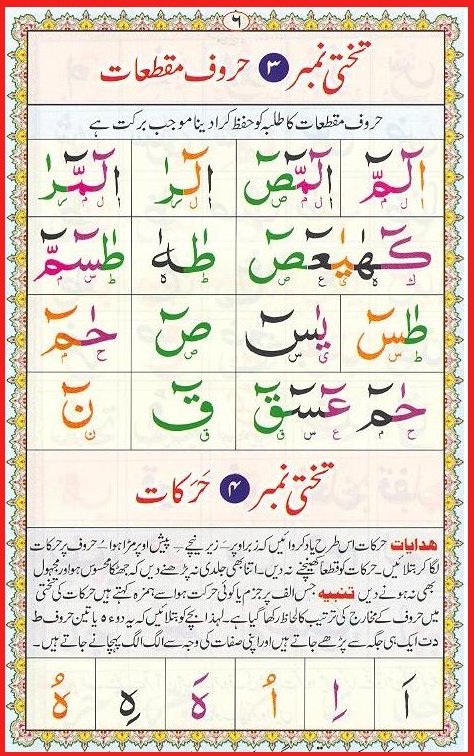 ٦
تختی نمبر ۳ حروف مقطعات
حروف مقطعات کا طلبہ کو حفظ کرا دینا موجب برکت ہے
الٓمّٓ الٓمّٓصٓ الٓرٰ الٓمّٓرٰ
ا ل م ا ل م ص ا ل ر ا ل م ر
كٓهٰيٰعٓصٓ طٰهٰ طٰسٓمّٓ
ك ه ی ع ص ط ه ط س م
طٰسٓ يٰسٓ صٓ حٰمٓ
ط س ی س ص ح م
حٰمٓ عٓسٓقٓ قٓ نٓ
ح م ع س ق ق ن
تختی نمبر ۴ حَرَکات
ھدایات حرکات اس طرح یاد کروائیں کہ زبر اوپر ــَـ زیر نیچے ــِـ پیش اوپر مڑا ہوا ــُـ حروف پر حرکات
لگا کر بتلائیں۔ حرکات کو قطعاً کھینچنے نہ دیں۔ اتنا بھی جلدی نہ پڑھنے دیں کہ جھٹکا محسوس ہو اور مجہول
بھی نہ ہونے دیں تنبیہ جس الف پر جزم یا کوئی حرکت ہو اسے ہمزہ کہتے ہیں حرکات کی تختی
میں حروف کے مخارج کی ترتیب کا لحاظ رکھا گیا ہے۔ لہذا بچے کو بتلائیں کہ یہ دو ء ہ یا تین حروف ط
د ت ایک ہی جگہ سے پڑھے جاتے ہیں اور اپنی صفات کی وجہ سے الگ الگ پہچانے جاتے ہیں۔
اَ اِ اُ هَ هِ هُ